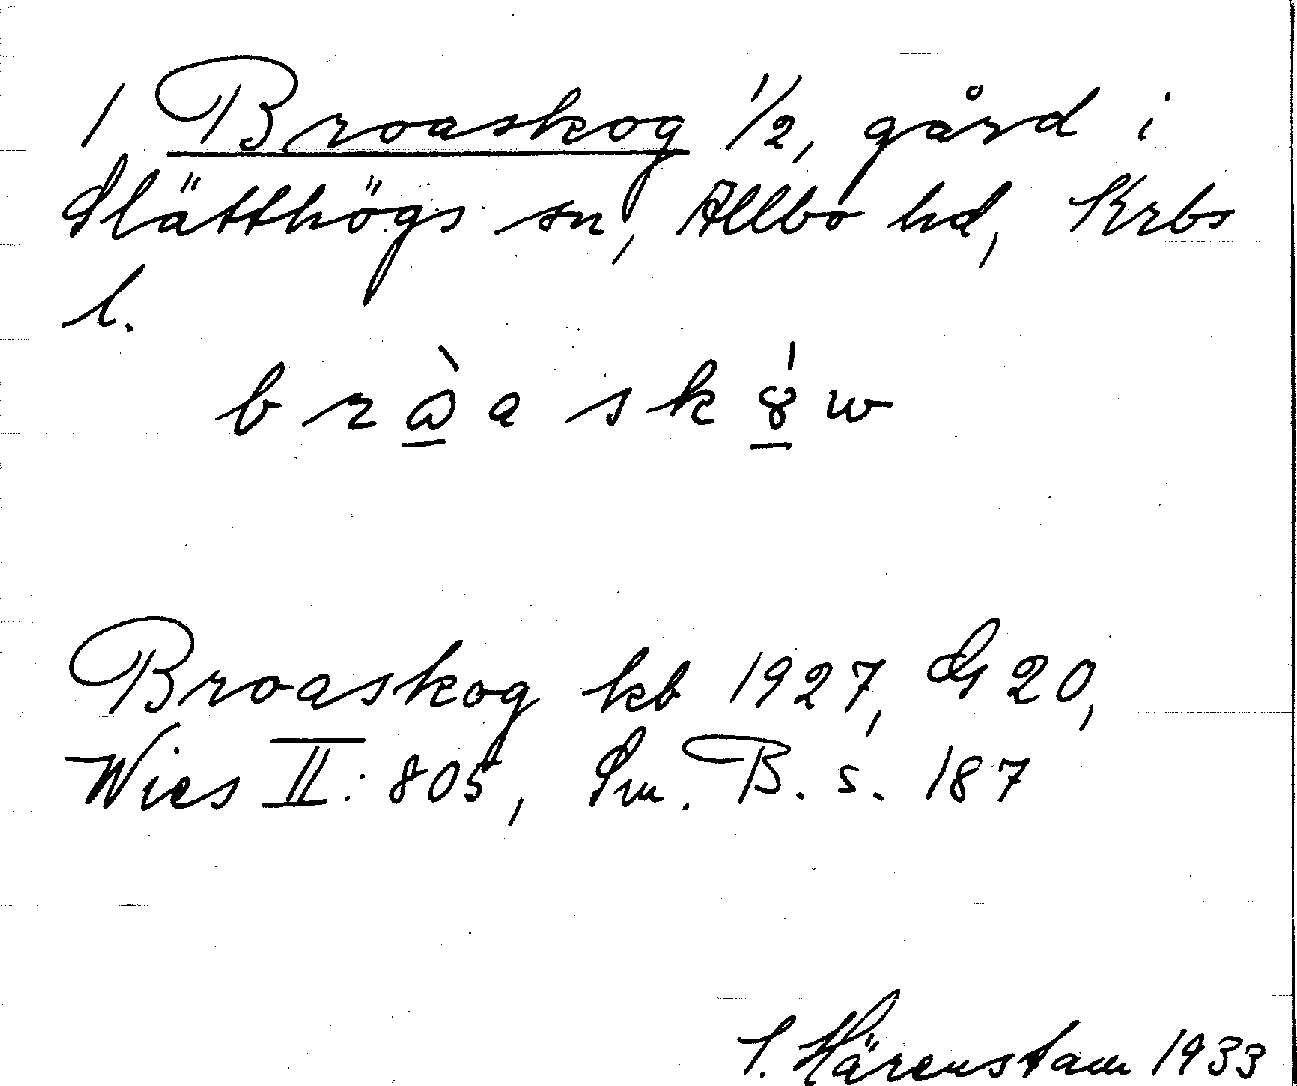 1 Broaskog 1/2, gård i
Slätthögs sn, Allbo hd, Krbs
l.
Broaskog kb 1927, G 20,
Wies II: 805, Sm. B. s. 187
Härenstam 1933